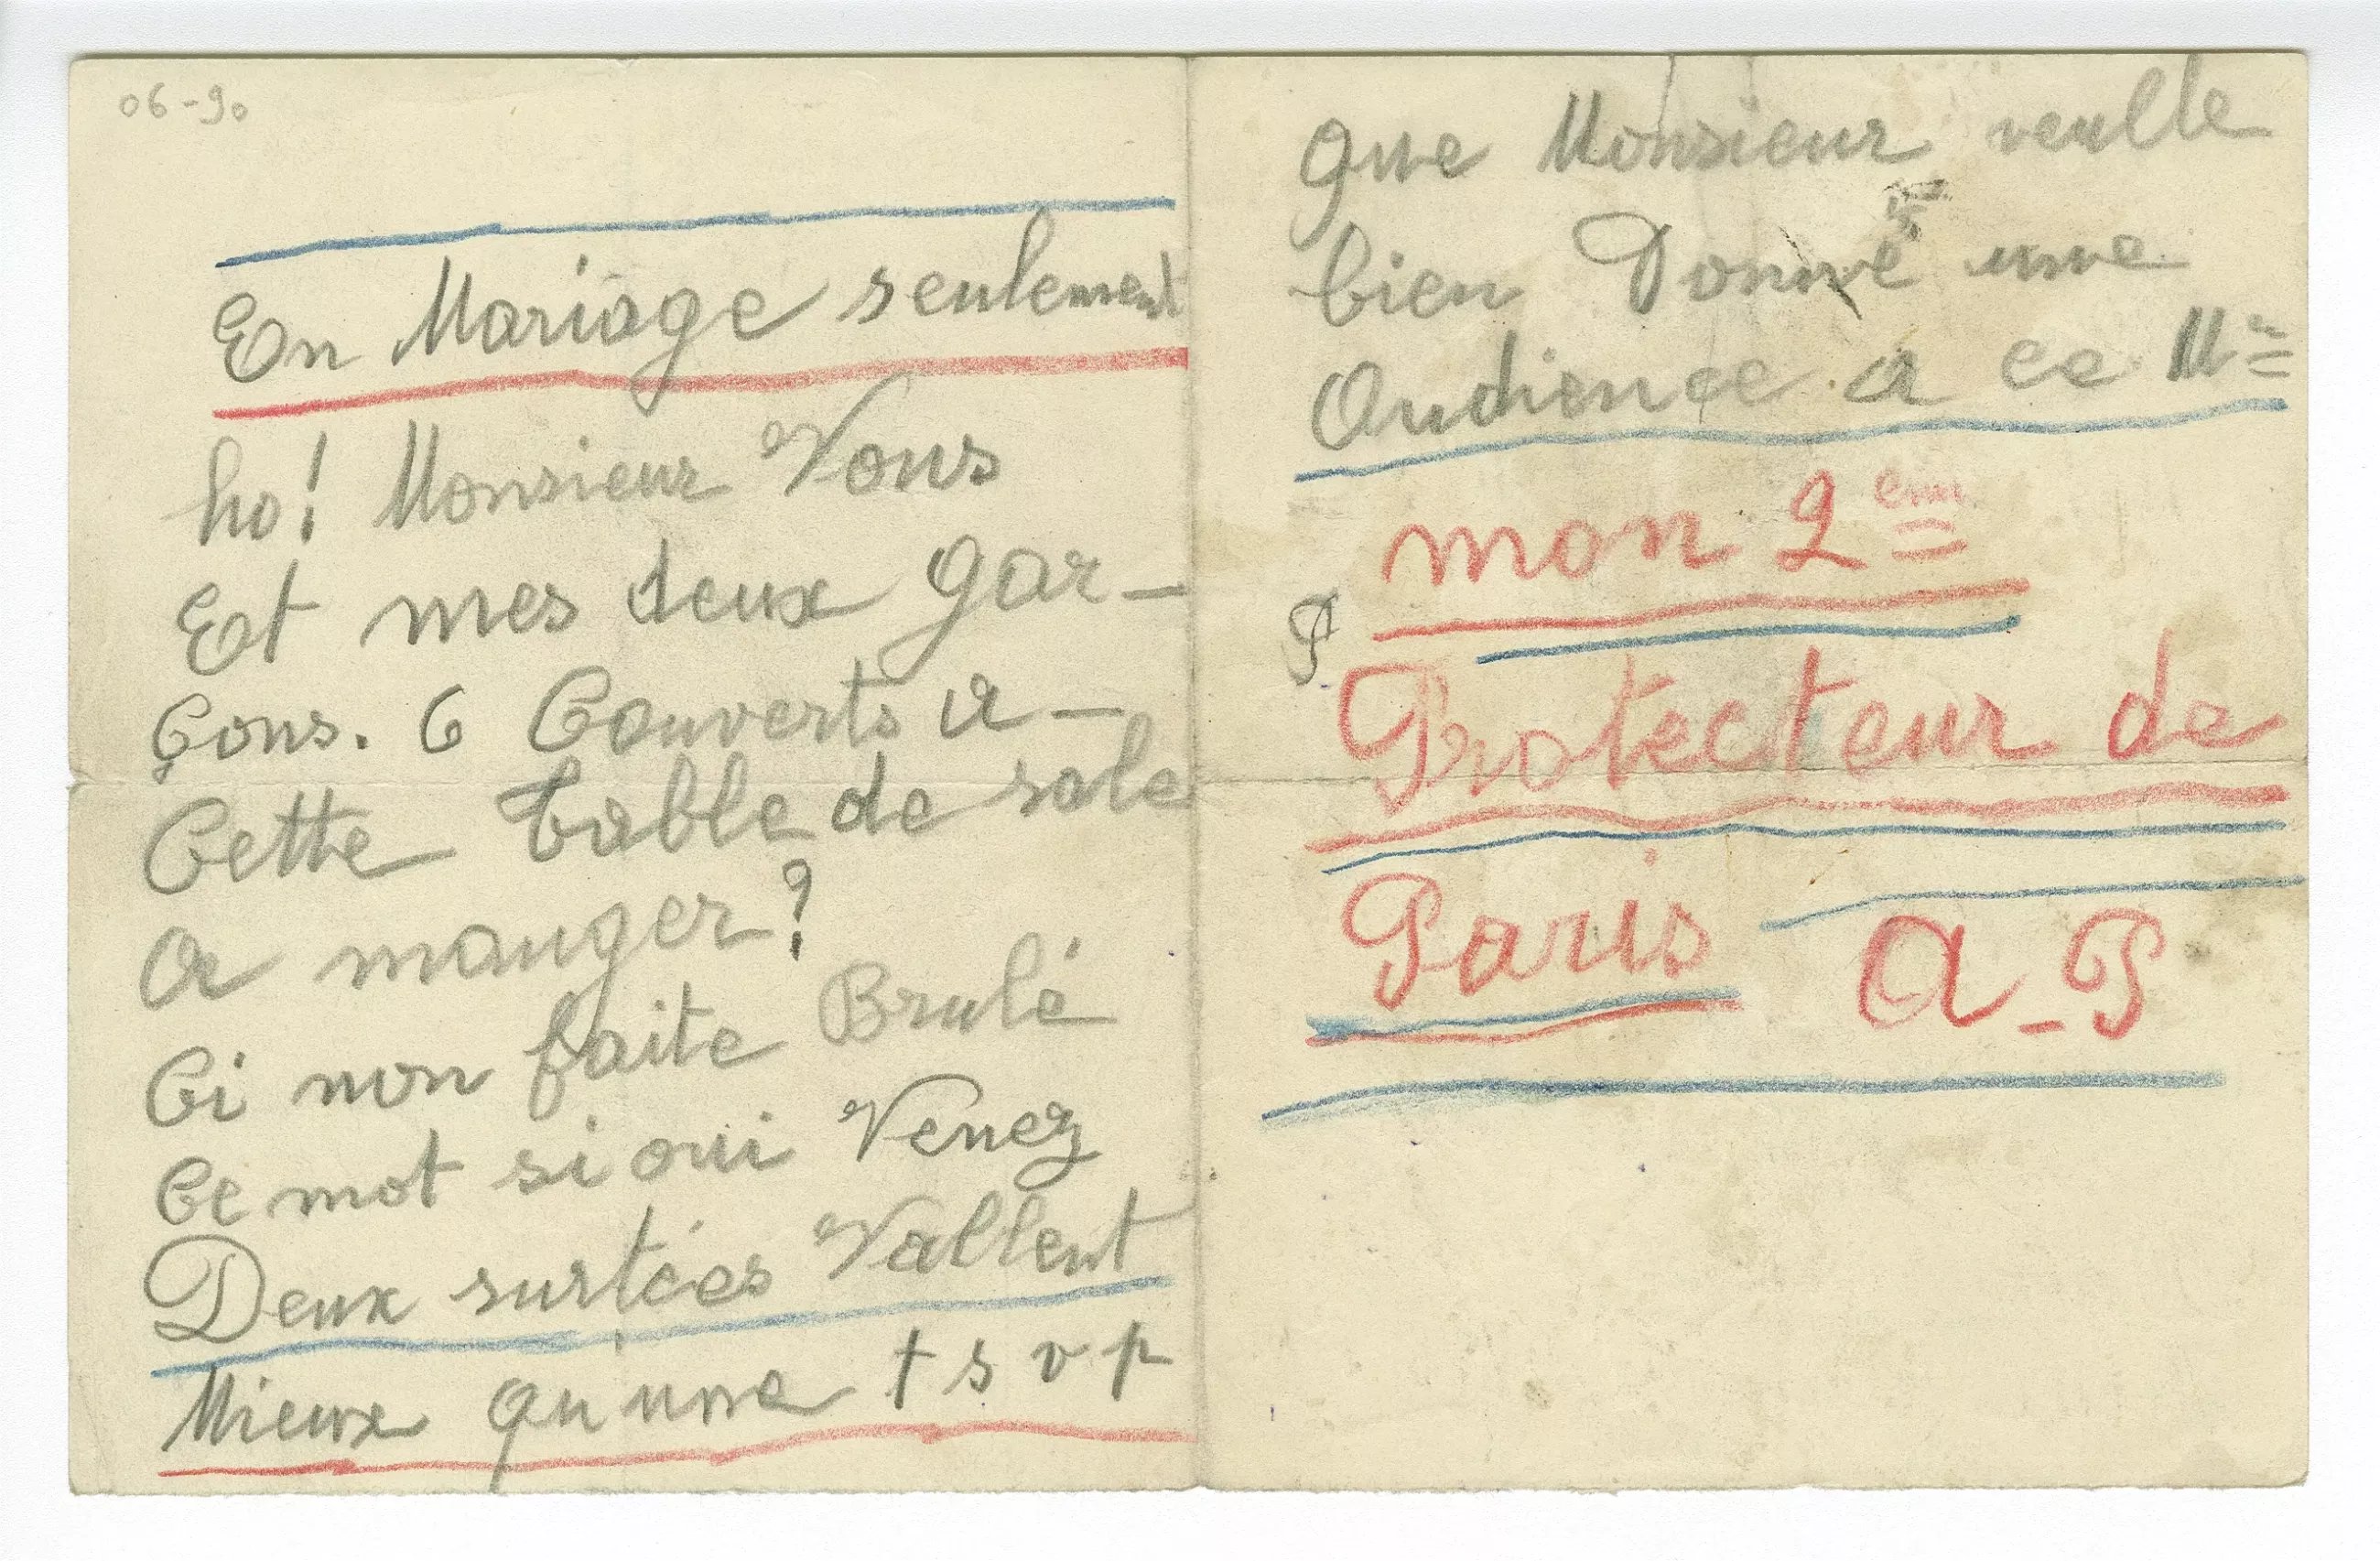 06-90
En Mariage seulement
ho! Monsieur Vous
Et mes deux gar-
Çons. 6 Couverts a-
Cette table de sale
a manger?
Ci non faite Brulé
Ce mot si oui Venez
Deux surtées Vallent
Mieux qu'une t s v p
que Monsieur veulle
bien Donné une
Audience a ce Mr
mon 2em
P
Protecteur de
Paris A-P